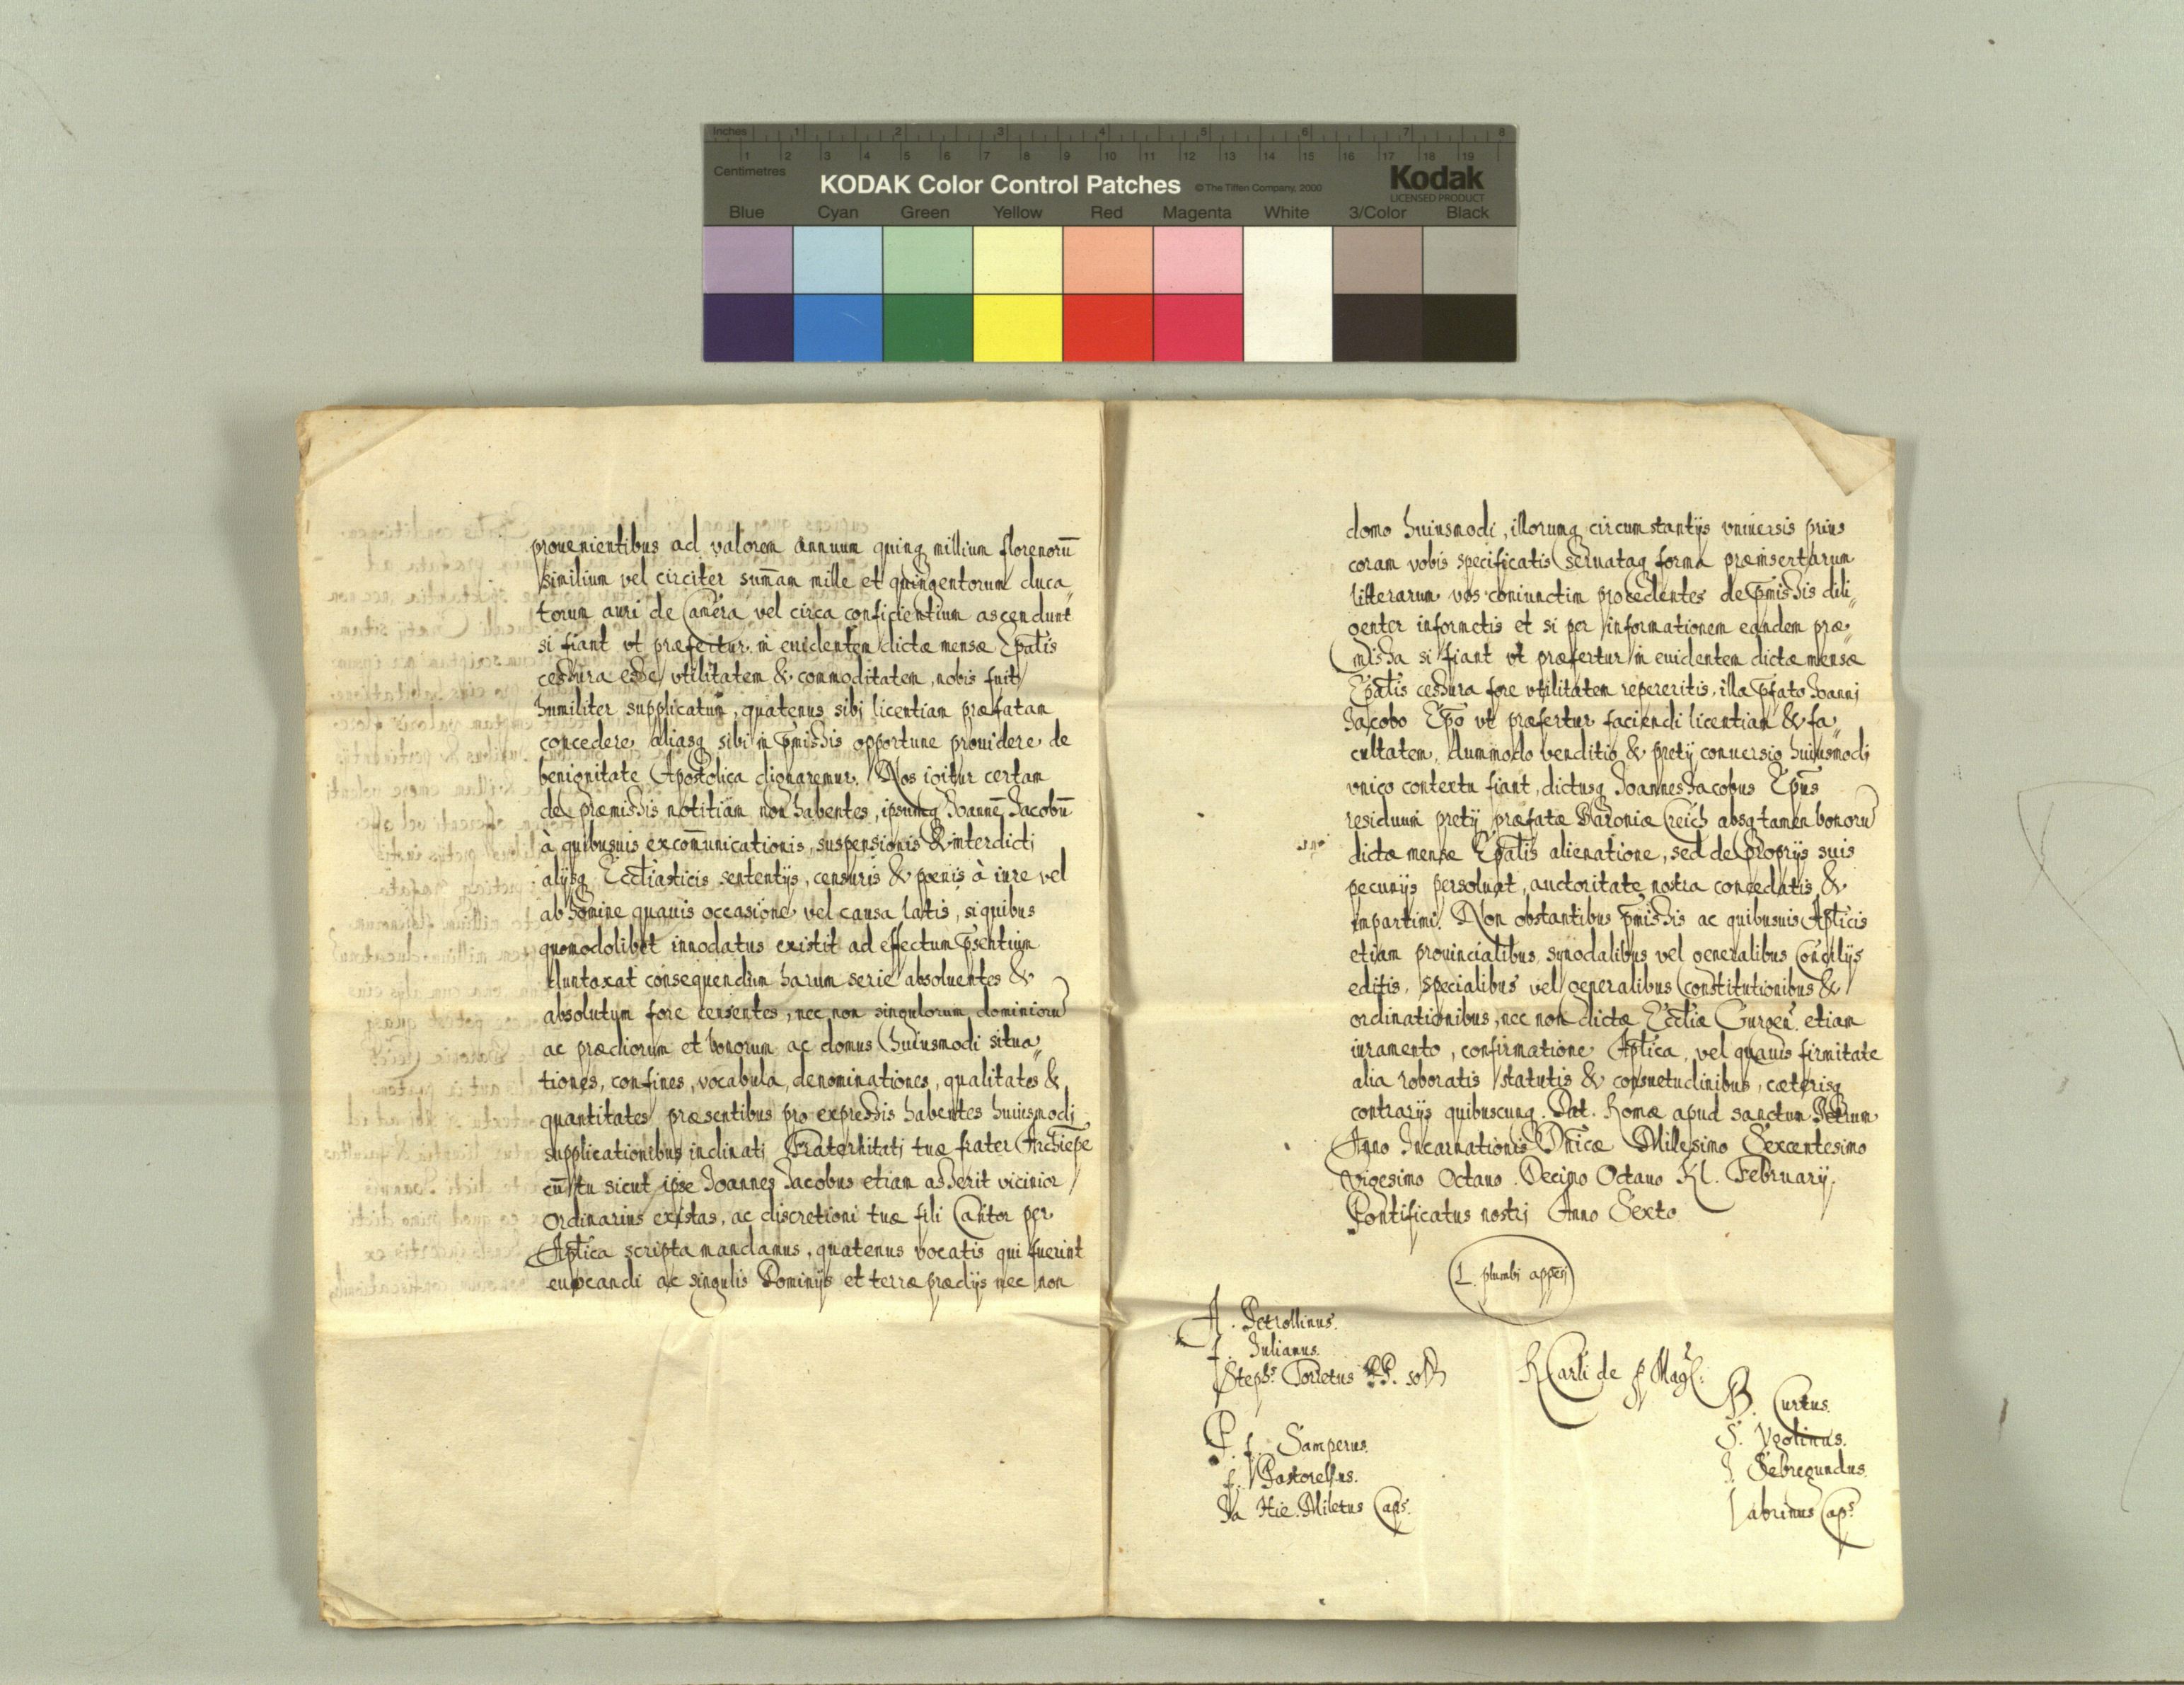 Inches 1 2 3 4 5 6 7 8
1 2 3 4 5 6 7 8 9 10 11 12 13 14 15 16 17 18 19
Centimetres
KODAK Color Control Patches © The Tiffen Company, 2000 Kodak
LICENSED PRODUCT
Blue Cyan Green Yellow Red Magenta White 3/Color Black
prouenientibus ad valorem annuum quinq millium florenorū
similium vel circiter sum̄am mille et quingentorum duca„
torum auri de Camera vel circa conficientium ascendunt
si fiant vt præfertur in euidentem dictæ mensæ Epālis
cessura esse vtilitatem & commoditatem, nobis fuit
humiliter supplicatum, quatenus sibi licentiam præfatam
concedere aliasq sibi in p̄missis opportune prouidere de
benignitate Apostolica dignaremur. Nos igitur certam
de præmissis notitiam non habentes, ipsumq Joannē Jacobū
à quibusuis excom̄unicationis, suspensionis & interdicti
alijsq Eccliasticis sententijs, censuris & pœnis à iure vel
ab homine quauis occasione vel causa latis, si quibus
quomodolibet innodatus existit ad effectum p̄sentium
duntaxat consequendum harum serie absoluentes &
absolutum fore censentes, nec non singulorum dominiorū
ac prædiorum et bonorum ac domus huiusmodi situa„
tiones, confines, vocabula, denominationes, qualitates &
quantitates præsentibus pro expressis habentes huiusmodi
supplicationibus inclinati Fraternitati tuæ frater Archiepē
cū tu sicut ipse Joannes Jacobus etiam asserit vicinior
Ordinarius existas, ac discretioni tuæ fili Cantor per
Aplica scripta mandamus, quatenus vocatis qui fuerint
euocandi ac singulis Dominijs et terræ prædijs nec non
domo huiusmodi, illorumq circumstantijs vniuersis prius
coram vobis specificatis seruataq forma præinsertarum
litterarum vos coniunctim procedentes de p̄missis dili„
genter informetis et si per informationem eandem præ„
missa si fiant vt præfertur in euidentem dictæ mensæ
Epālis cessura fore vtilitatem repereritis, illa p̄fato Joanni
Jacobo Epō vt præfertur faciendi licentiam & fa„
cultatem, dummodo venditio & pretij conuersio huiusmodi
vnico contextu fiant, dictusq Joannes Jacobus Epūs
residuum pretij præfatæ Baroniæ Creich absq tamen bonorū
dictæ mensæ Epālis alienatione, sed de proprijs suis
pecunijs persoluat, auctoritate nostra concedatis &
impartimi. Non obstantibus p̄missis ac quibusuis Aplicis
etiam prouincialibus, synodalibus vel generalibus Concilijs
editis, specialibus vel generalibus constitutionibus &
ordinationibus, nec non dictæ Eccliæ Gurgen. etiam
iuramento, confirmatione Aplica, vel quauis firmitate
alia roboratis statutis & consuetudinibus, cæterisq
contrarijs quibuscunq. Dat. Romæ apud sanctum Petrum
Anno Incarnationis Dnicæ Millesimo Sexcentesimo
Vigesimo Octauo. Decimo Octauo Kl. Februarij.
Pontificatus nostri Anno Sexto.
L. plumbi appēsi
A. Petrollinus.
f. Julianus.
Stephs. Torretus
Carli de
B. Curtus.
S. Vgolinus.
P. f. Samperus.
f. Pastorellus.
J. Sebregundus.
Ja Hie. Miletus Caps.
Labrinus Caps.